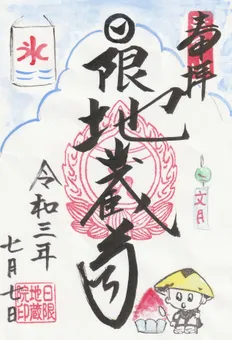 奉拝
文月
日限地蔵尊
氷
令和三年
七月七日
日限
地蔵
院印